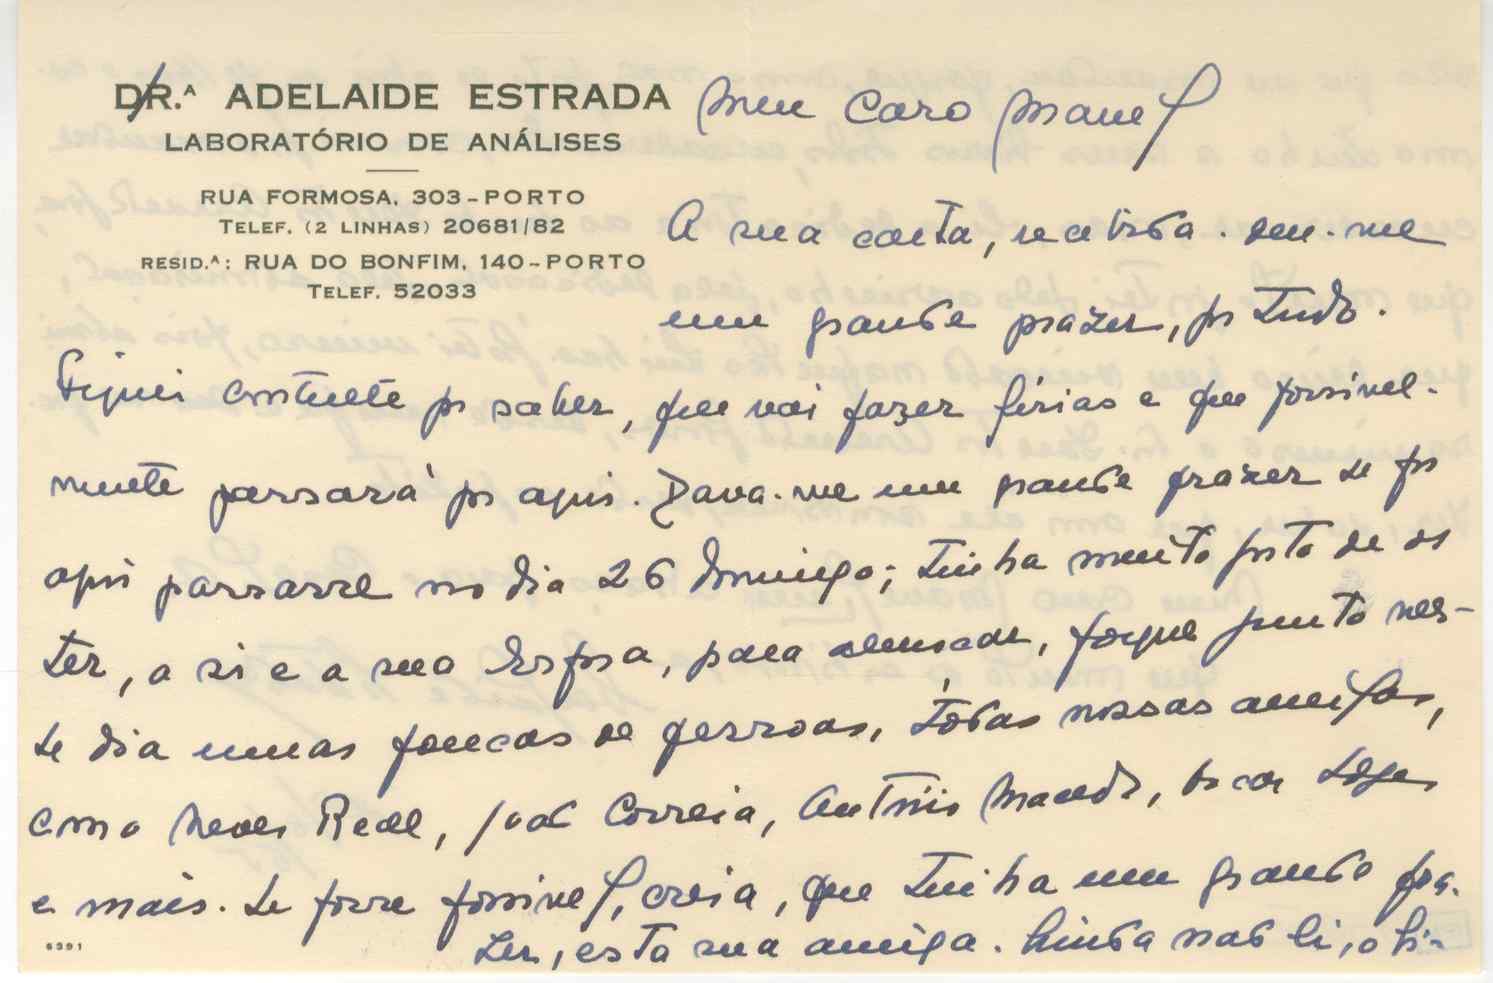 DR.ᴬ ADELAIDE ESTRADA
LABORATÓRIO DE ANÁLISES
RUA FORMOSA, 303-PORTO
TELEF. (2 LINHAS) 20681/82
RESID.ᴬ: RUA DO BONFIM, 140-PORTO
TELEF. 52033
Meu Caro Manel
A sua carta, recebida. deu-me
um grande prazer, pr tudo.
Fiquei contente pr saber, que vai fazer férias e que possivel-
mente passará pr aqui. Dava-me um grande prazer se pr
aqui passasse no dia 26 domingo; tinha muito gosto de os
ter, a si e a sua Esposa, para almoçar, porque junto nes-
te dia umas poucas de pessoas, todas nossas amigas,
como Neves Real, José Correia, António Macedo, Oscar Lopes
e mais. Se fosse possivel, creia, que tinha um grande pra-
zer, esta sua amiga. Ainda não li, o li-
6391